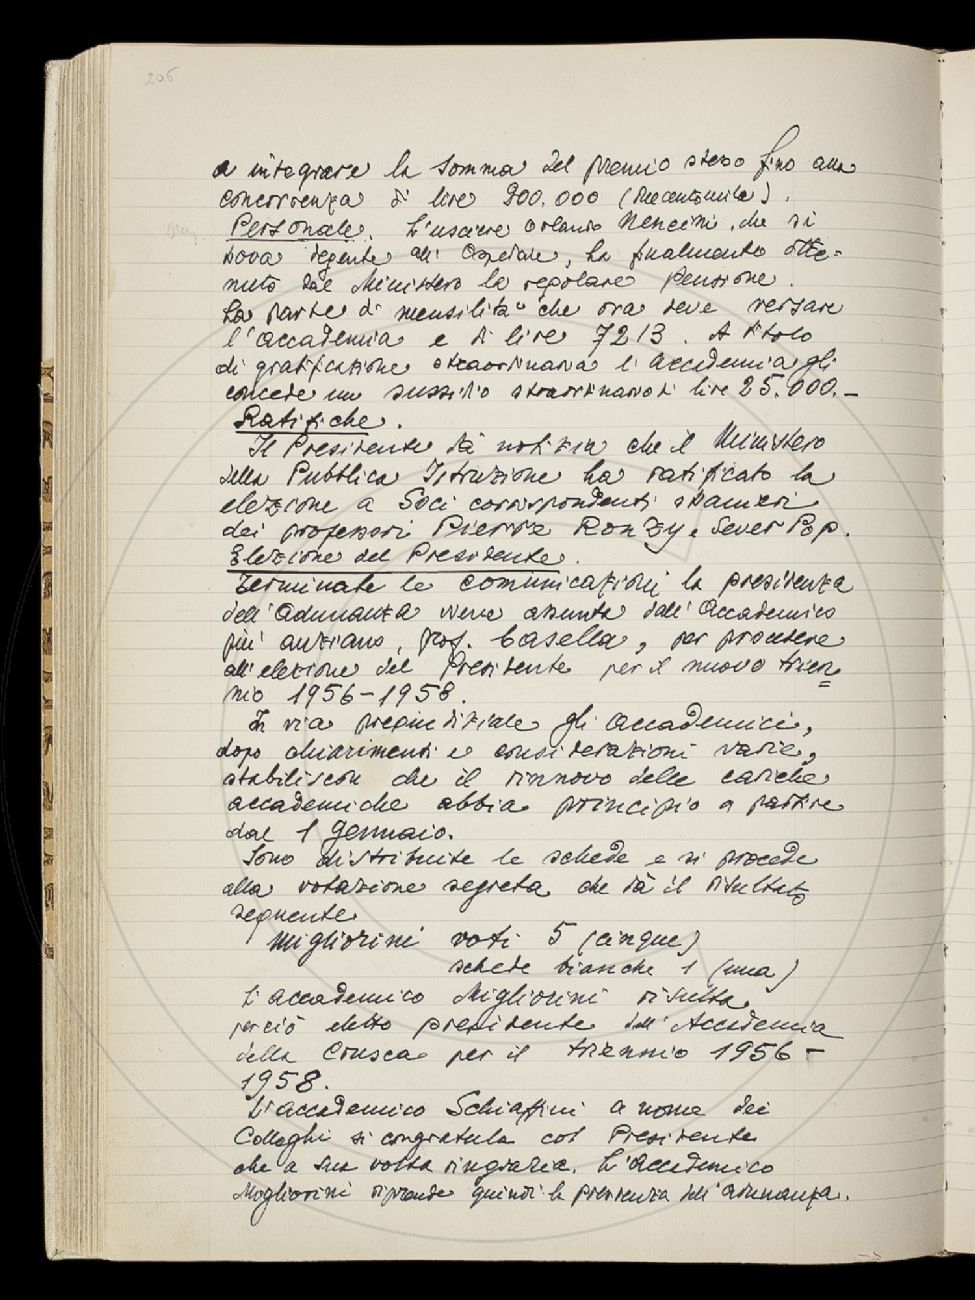 206
a integrare la somma del premio stesso fino alla
concorrenza di lire 200.000 (duecentomila).
Personale. L'usciere Orlando Nencini, che si
trova degente all'Ospedale, ha finalmente otte=
nuto dal Ministero la regolare pensione.
La parte di mensilità che ora deve versare
l'accademia e di lire 7213. A titolo
di gratificazione straordinaria l'accademia gli
concede un sussidio straordinario di lire 25.000.—
Ratifiche.
Il Presidente dà notizia che il Ministero
della Pubblica Istruzione ha ratificato la
elezione a Soci corrispondenti stranieri
dei professori Pierre Ronzy e Sever Pop.
Elezione del Presidente.
Terminate le comunicazioni la presidenza
dell'adunanza viene assunta dall'Accademico
più anziano, prof. Casella, per procedere
all'elezione del Presidente per il nuovo trien=
nio 1956-1958.
In via pregiudiziale gli accademici,
dopo chiarimenti e considerazioni varie,
stabiliscon che il rinnovo delle cariche
accademiche abbia principio a partire
dal 1 gennaio.
Sono distribuite le schede e si procede
alla votazione segreta che dà il risultato
seguente
Migliorini voti 5 (cinque)
schede bianche 1 (una)
L'accademico Migliorini risulta
perciò eletto presidente dell'Accademia
della Crusca per il triennio 1956-
1958.
L'accademico Schiaffini a nome dei
Colleghi si congratula col Presidente
che a sua volta ringrazia. L'Accademico
Migliorini riprende quindi la presidenza dell'adunanza.